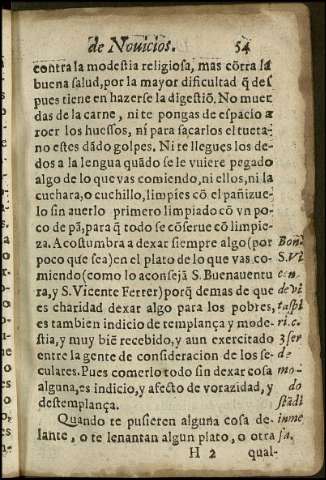 de Nouicios. 54
contra la modestia religiosa, mas cõtra la
buena salud, por la mayor dificultad q̃ des
pues tiene en hazerse la digestiõ. No muer
das de la carne, ni te pongas de espacio a
roer los huessos, ni para sacarlos el tueta-
no estes dãdo golpes. Ni re llegues los de-
dos a la lengua quãdo se le vuiere pegado
algo de lo que vas comiendo, ni ellos, ni la
cuchara, o cuchillo, limpies cõ el pañizue-
lo sin auerlo primero limpiado cõ vn po-
co de pã, para q̃ todo se cõserue cõ limpie-
za. Acostumbra a dexar siempre algo (por
poco que sea) en el plato de lo que vas co-
miendo (como lo aconsejã S. Buenauentu
ra, y S. Vicente Ferrer) porq̃ demas de que
es charidad dexar algo para los pobres,
es tambien indicio de templança, y mode-
stia, y muy biẽ recebido, y aun exercitado
entre la gente de consideracion de los se-
culares. Pues comerlo todo sin dexar cosa
alguna, es indicio, y afecto de vorazidad, y
destemplança.
Quando te pusieren alguna cosa de-
lante, o te leuantan algun plato, o otra
H 2 qual-
Bon.
S. Vi
cen-
de vi
ta spi
ri. c.
3 ser
de
mo-
do
stãdi
in me
sa.